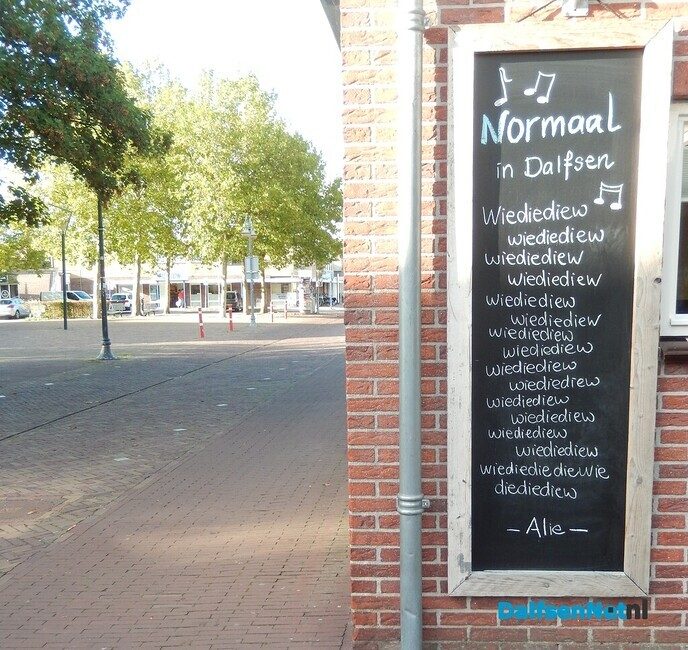 Normaal
in Dalfsen
Wiediediew
wiediediew
wiediediew
wiediediew
wiediediew
wiediediew
wiediediew
wiediediew
wiediediew
wiediediew
wiediediew
wiediediew
wiediediew
wiediediew
wiediediediewie
diediediew
- Alie -
DalfsenNet.nl